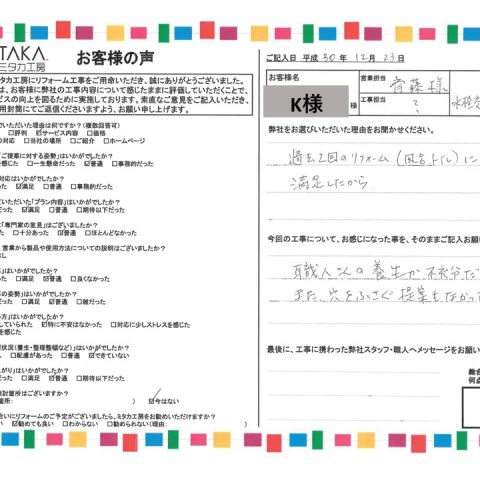 TAKA
ミタカ工房
お客様の声
タカ工房にリフォーム工事をご用命いただき、誠にありがとうございました。
は、お客様に弊社の工事内容について感じたままに評価していただくことで、
ビスの向上を図るために実施しております。素直なご意見をご記入いただき、
用封筒にてご返信くださいますよう、お願い申し上げます。
でいただいた理由は何ですか？(複数回答可)
□評判 ☑サービス内容 □価格
の対応 □当社の場所 □ご紹介 □ホームページ
「ご提案に対する姿勢」はいかがでしたか？
を感じた □一生懸命だった ☑普通 □事務的だった
対応はいかがでしたか？
った ☑満足 □普通 □事務的だった
ていただいた「プラン内容」はいかがでしたか？
った ☑満足 □普通 □期待以下だった
に「専門家の意見」はございましたか？
た □十分あった ☑普通 □ほとんどなかった
営業から製品や使用方法についての説明はございましたか？
なし
」はいかがでしたか？
った □満足 ☑普通 □良くなかった
の姿勢」はいかがでしたか？
った □満足 ☑普通 □雑だった
方」はいかがでしたか？
していられた ☑特に不安はなかった □対応に少しストレスを感じた
スを感じた
状況(養生・整理整頓など)」はいかがでしたか？
□配慮があった □普通 ☑できていない
がり」はいかがでしたか？
った □満足 ☑普通 □期待以下だった
検討箇所はございますか？
箇所: ) ☑今はない
合いにリフォームのご予定がございましたら、ミタカ工房をお勧めいただけますか？
い ☑勧めても良い □わからない □勧められない(理由: )
ご記入日 平成 30 年 12 月 23 日
お客様名
K様
様
営業担当
斉藤 様
工事担当
?
弊社をお選びいただいた理由をお聞かせください。
過去2回のリフォーム(風呂、トイレ)に
満足したから
今回の工事について、お感じになった事を、そのままご記入お願い
職人さんの養生が不十分だ
また、穴をふさぐ提案もなかっ
最後に、工事に携わった弊社スタッフ・職人へメッセージをお願い
総合
何点